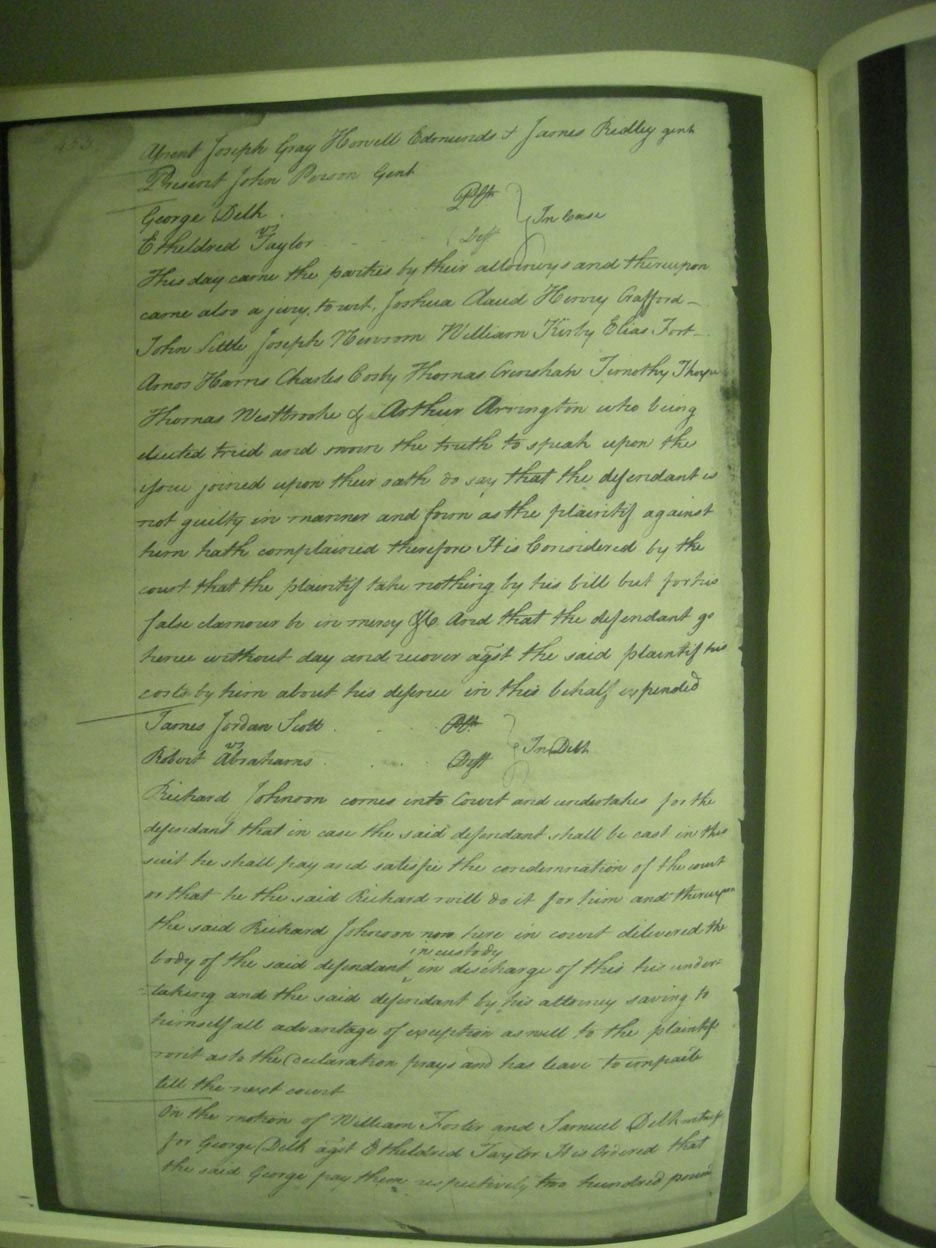 453
Absent Joseph Gray Howell Edmunds & James Ridley gent
Present John Person Gent
George Delk Pltf
vs } In Case
Etheldred Taylor Deft
This day came the parties by their attorneys and thereupon
came also a jury, to wit, Joshua Claud Henry Crafford
John Little Joseph Newsom William Kirby Elias Fort
Amos Harris Charles Cosby Thomas Crenshah Timothy Thorpe
Thomas Westbrooke & Arthur Arrington who being
elected tried and sworn the truth to speak upon the
joined upon their oath do say that the defendant is
not guilty in manner and form as the plaintif against
him hath complained therefore It is Considered by the
court that the plaintif take nothing by his bill but for his
false clamour be in mercy &c And that the defendant go
hence without day and recover agst the said plaintif his
costs by him about his defence in this behalf expended
James Jordan Scott Pltf
vs } In Debt
Robert Abrahams Deft
Richard Johnson comes into Court and undertakes for the
defendant that in case the said defendant shall be cast in this
suit he shall pay and satisfie the condemnation of the court
or that he the said Richard will do it for him and thereupon
the said Richard Johnson now here in court delivered the
in custody
body of the said defendant in discharge of this his under=
=taking and the said defendant by his attorney saving to
himself all advantage of exception as well to the plaintifs
writ as to the declaration prays and has leave to imparle
till the next court
On the motion of William Foster and Samuel Delk
for George Delk agst Etheldred Taylor It is Ordered that
the said George pay them respectively two hundred pounds